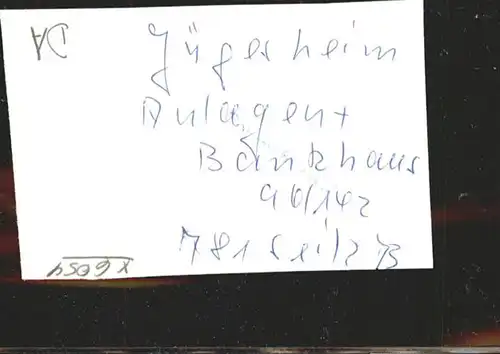 DA
Jügesheim
Anlagen +
Bankhaus
96/142
781 Seitz B
X6054